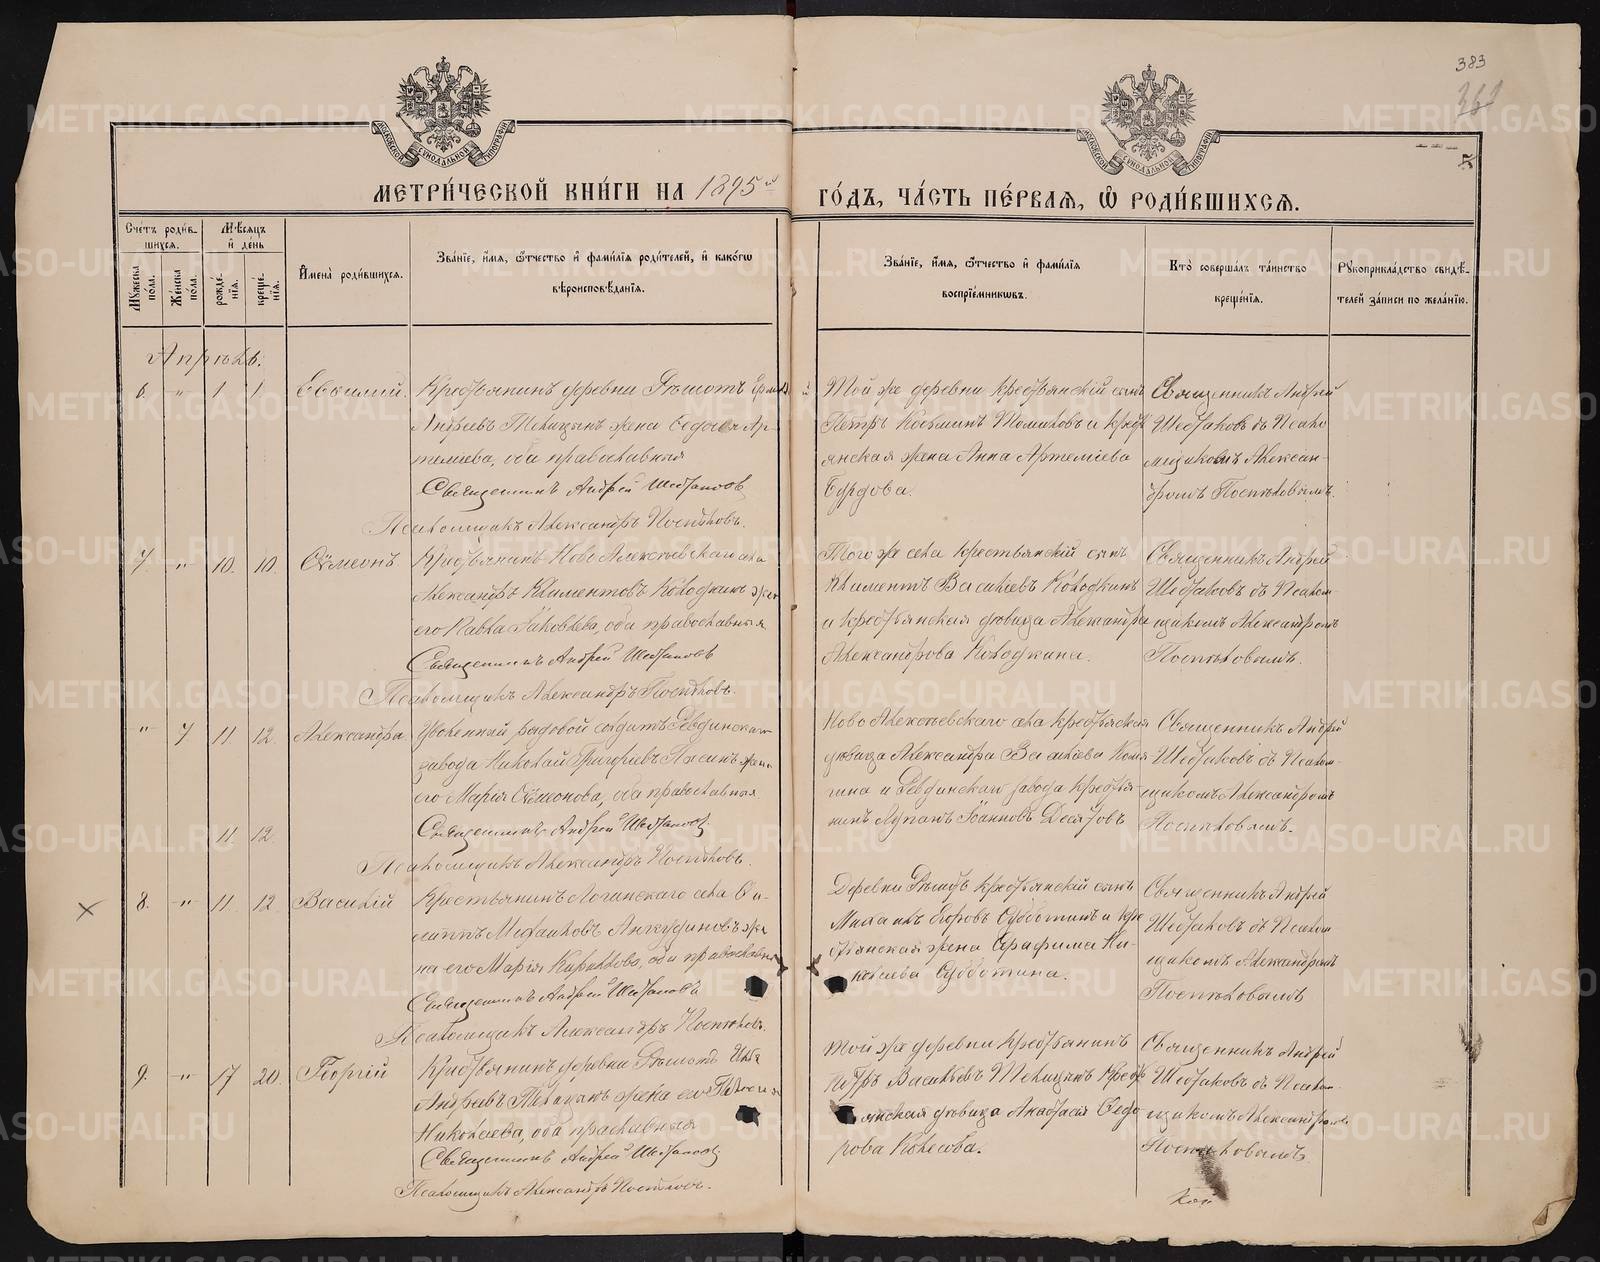 383
МОСКОВСКОЙ СѴНОДАЛЬНОЙ ТИПОГРАФІИ
МОСКОВСКОЙ СѴНОДАЛЬНОЙ ТИПОГРАФІИ
МЕТРИ́ЧЕСКОЙ КНИ́ГИ НА 1895й ГО́ДЪ, ЧА́СТЬ ПЕ́РВАѦ, Ѡ҆ РОДИ́ВШИХСѦ.
Сче́тъ роди́в-
шихсѧ.
Мѣ́сѧцъ
и҆ день
Мꙋ́жеска по́ла.
Же́нска по́ла.
рожде́-нїѧ.
креще́-нїѧ.
И҆мена̀ роди́вшихсѧ.
Зва́нїе, и҆́мѧ, ѻ҆́тчество и҆ фами́лїѧ роди́телей, и҆ како́гѡ
вѣроисповѣ́данїѧ.
Зва́нїе, и҆́мѧ, ѻ҆́тчество и҆ фами́лїѧ
воспрїе́мникѡвъ.
Кто̀ соверша́лъ та́инство
креще́нїѧ.
Рꙋкоприкла́дство свидѣ́-
телей за́писи по жела́нїю.
Апрѣль.
6. " 1 1 Евфимій. Крестьянинъ деревни Рѣшотъ
Андреевъ Телицынъ жена Ѳедосья Ар-
темиева, оба православныя
Священникъ Андрей Шестаковъ
Псаломщикъ Александръ Поспѣловъ.
Той же деревни крестьянскій сынъ
Петръ Косьминъ и крест
янская жена Анна Артеміева
Бурдова.
Священникъ Андрей
Шестаковъ съ Псало
мщикомъ Алексан-
дромъ Поспѣловымъ.
7. " 10. 10. Сѵмеонъ Крестьянинъ Ново Алексѣевскаго села
Александръ Климентовъ Колодкинъ жен
его Павла Іаковлева, оба православныя
Священникъ Андрей Шестаковъ
Псаломщикъ Александръ Поспѣловъ.
Того же села крестьянскій сынъ
Климентъ Васильевъ Колодкинъ
и крестьянская дѣвица Александра
Александрова Колодкина.
Священникъ Андрей
Шестаковъ съ Псалом
щикомъ Александромъ
Поспѣловымъ.
" 7 11 12. Александра Уволенный рядовой солдатъ Ревдинскаго
завода Николай Григоріевъ жена
его Марія Сѵмеонова, оба православныя
11. 12. Священникъ Андрей Шестаковъ
Псаломщикъ Александръ Поспѣловъ.
Ново Алексѣевскаго села крестьянская
дѣвица Александра Васильева
и Ревдинскаго завода крестья-
нинъ Лукіанъ Іоанновъ Десятовъ
Священникъ Андрей
Шестаковъ съ Псалом-
щикомъ Александромъ
Поспѣловымъ.
8. " 11 12 Василій Крестьянинъ села Фи-
липпъ Михаиловъ Анкудиновъ же
на его Марія Кириллова, оба православны
Священникъ Андрей Шестаковъ
Псаломщикъ Александръ Поспѣловъ.
Деревни Рѣшотъ крестьянскій сынъ
Михаилъ Егоровъ Субботинъ и кре
стьянская жена Серафима Ни-
колаева Субботина.
Священникъ Андрей
Шестаковъ съ Псалом
щикомъ Александромъ
Поспѣловымъ
9. " 17 20. Георгій Крестьянинъ деревни Рѣшотъ
Андреевъ Телицынъ жена его Пелагія
Николаева, оба православныя
Священникъ Андрей Шестаковъ
Псаломщикъ Александръ Поспѣловъ.
Той же деревни крестьянинъ
Петръ Васильевъ Телицынъ крест
янская дѣвица Анастасія Ѳедо
рова Колесова.
Священникъ Андрей
Шестаковъ съ Псалом
щикомъ Александромъ
Поспѣловымъ.
METRIKI.GASO-URAL.RU